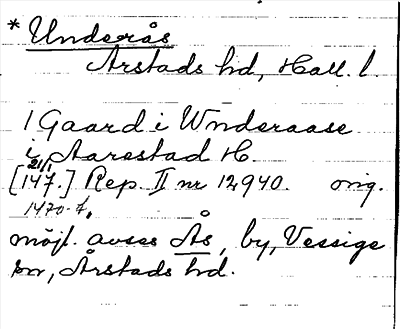 * Underås
Årstads hd, Hall. l.
1 Gaard i Wnderaase
i Aarestad H.
21/1
[147.] Rep. II nr 12940. orig.
1470-t.
möjl. avses Ås, by, Vessige
sn, Årstads hd.